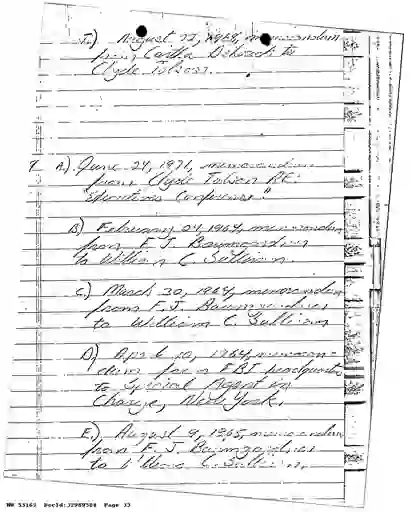 I.) August 22, 1968, memorandum
from Cartha DeLoach to
Clyde Tolson.
9 A.) June 24, 1971, memorandum
from Clyde Tolson RE:
"Executives Conference"
B) February 27, 1964, memorandum
from F.J. Baumgardner
to William C. Sullivan.
C.) March 30, 1964, memorandum
from F.J. Baumgardner
to William C. Sullivan
D) April 10, 1964, memoran-
dum from FBI headquarters
to Special Agent in
Charge, New York.
E.) August 9, 1965, memorandum
from F. J. Baumgardner
to William C. Sullivan.
NW 55162 DocId:32989508 Page 33